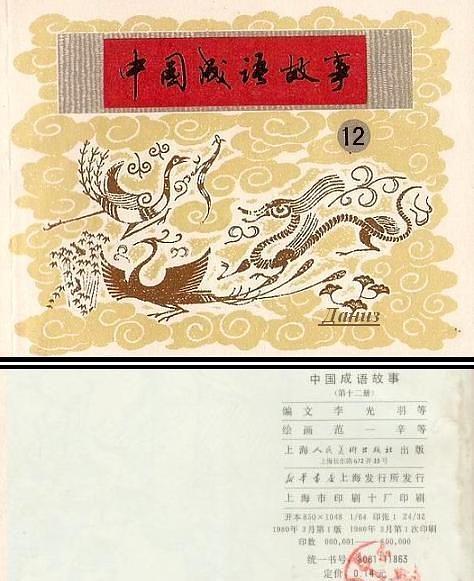 中国成语故事
12
Даниз
中国成语故事
(第十二册)
编文 李光羽等
绘画 范一辛等
上海人民美术出版社 出版
上海长乐路672弄33号
新华书店上海发行所发行
上海市印刷十厂印刷
开本 850×1048 1/64 印张: 24/32
1980年3月第1版 1980年3月第1次印刷
印数 000,001—600,000
统一书号 8081·11863
定价 0.14 元